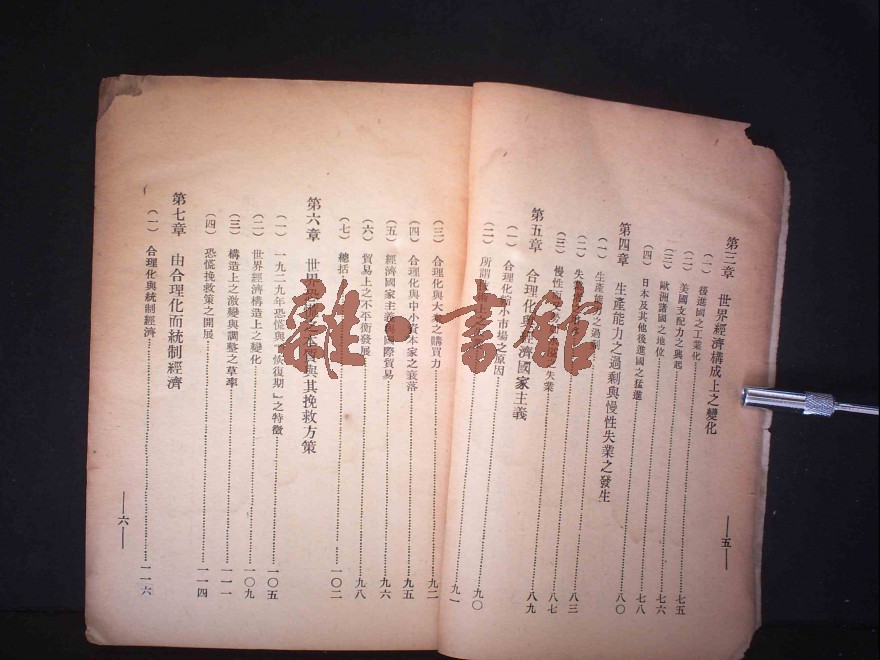 第三章　世界經濟構成上之變化
（一）後進國之工業化……七五
（二）美國支配力之興起……七六
（三）歐洲諸國之地位……七八
（四）日本及其他後進國之猛進……八〇
第四章　生產能力之過剩與慢性失業之發生
（一）生產能力之過剩……八三
（二）失……八七
（三）慢性……失業……八九
第五章　合理化與經濟國家主義
（一）合理化縮小市場之原因……九〇
（二）所謂……九一
（三）合理化與大眾之購買力……九二
（四）合理化與中小資本家之衰落……九五
（五）經濟國家主義與國際貿易……九六
（六）貿易上之不平衡發展……九八
（七）總括……一〇二
第六章　世界恐慌之本質與其挽救方策
（一）一九二九年恐慌與「恢復期」之特徵……一〇五
（二）世界經濟構造上之變化……一〇九
（三）構造上之激變與調整之草率……一一一
（四）恐慌挽救策之開展……一一四
第七章　由合理化而統制經濟
（一）合理化與統制經濟……一一六
—五—
—六—
雜·書館